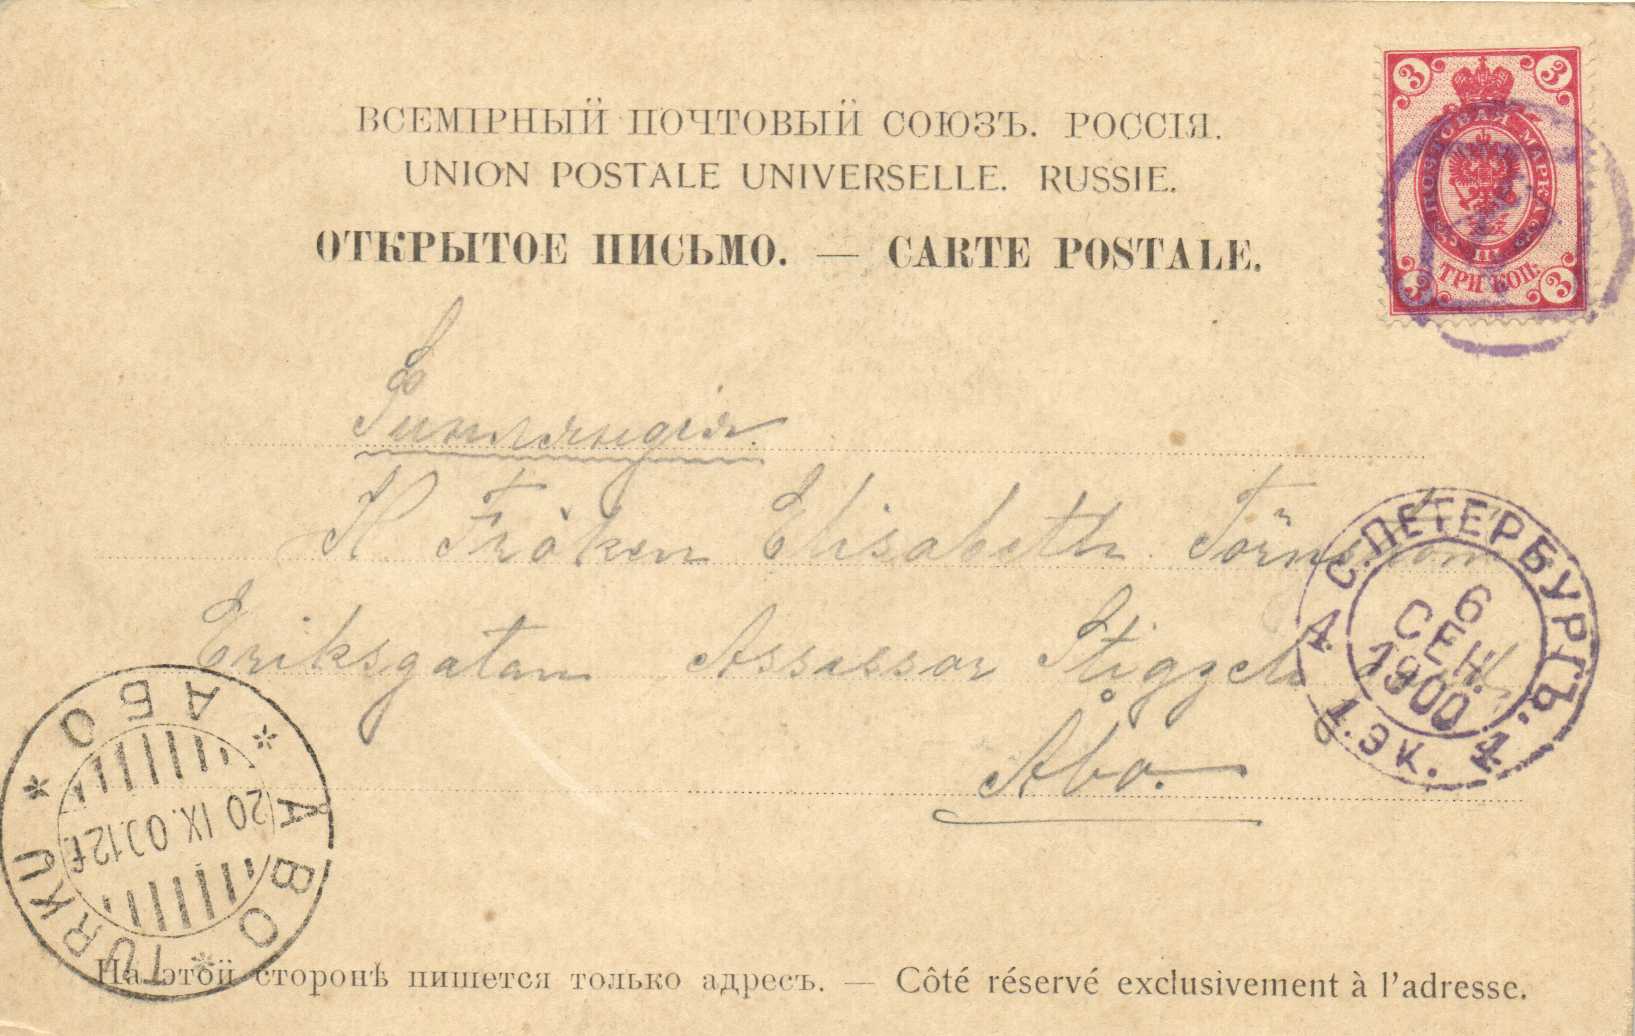 ВСЕМІРНЫЙ ПОЧТОВЫЙ СОЮЗЪ. РОССІЯ.
UNION POSTALE UNIVERSELLE. RUSSIE.
ОТКРЫТОЕ ПИСЬМО. — CARTE POSTALE.
3 3
ПОЧТОВАЯ МАРКА
ТРИ КОП.
3 3
Финляндія.
Fröken Elisabeth Törnström
Eriksgatan Assessor
Åbo.
С.ПЕТЕРБУРГЪ.
6
СЕН.
1900
1.ЭК.
АБО
ÅBO
TURKU
20 IX.
На этой сторонѣ пишется только адресъ. — Côté réservé exclusivement à l'adresse.